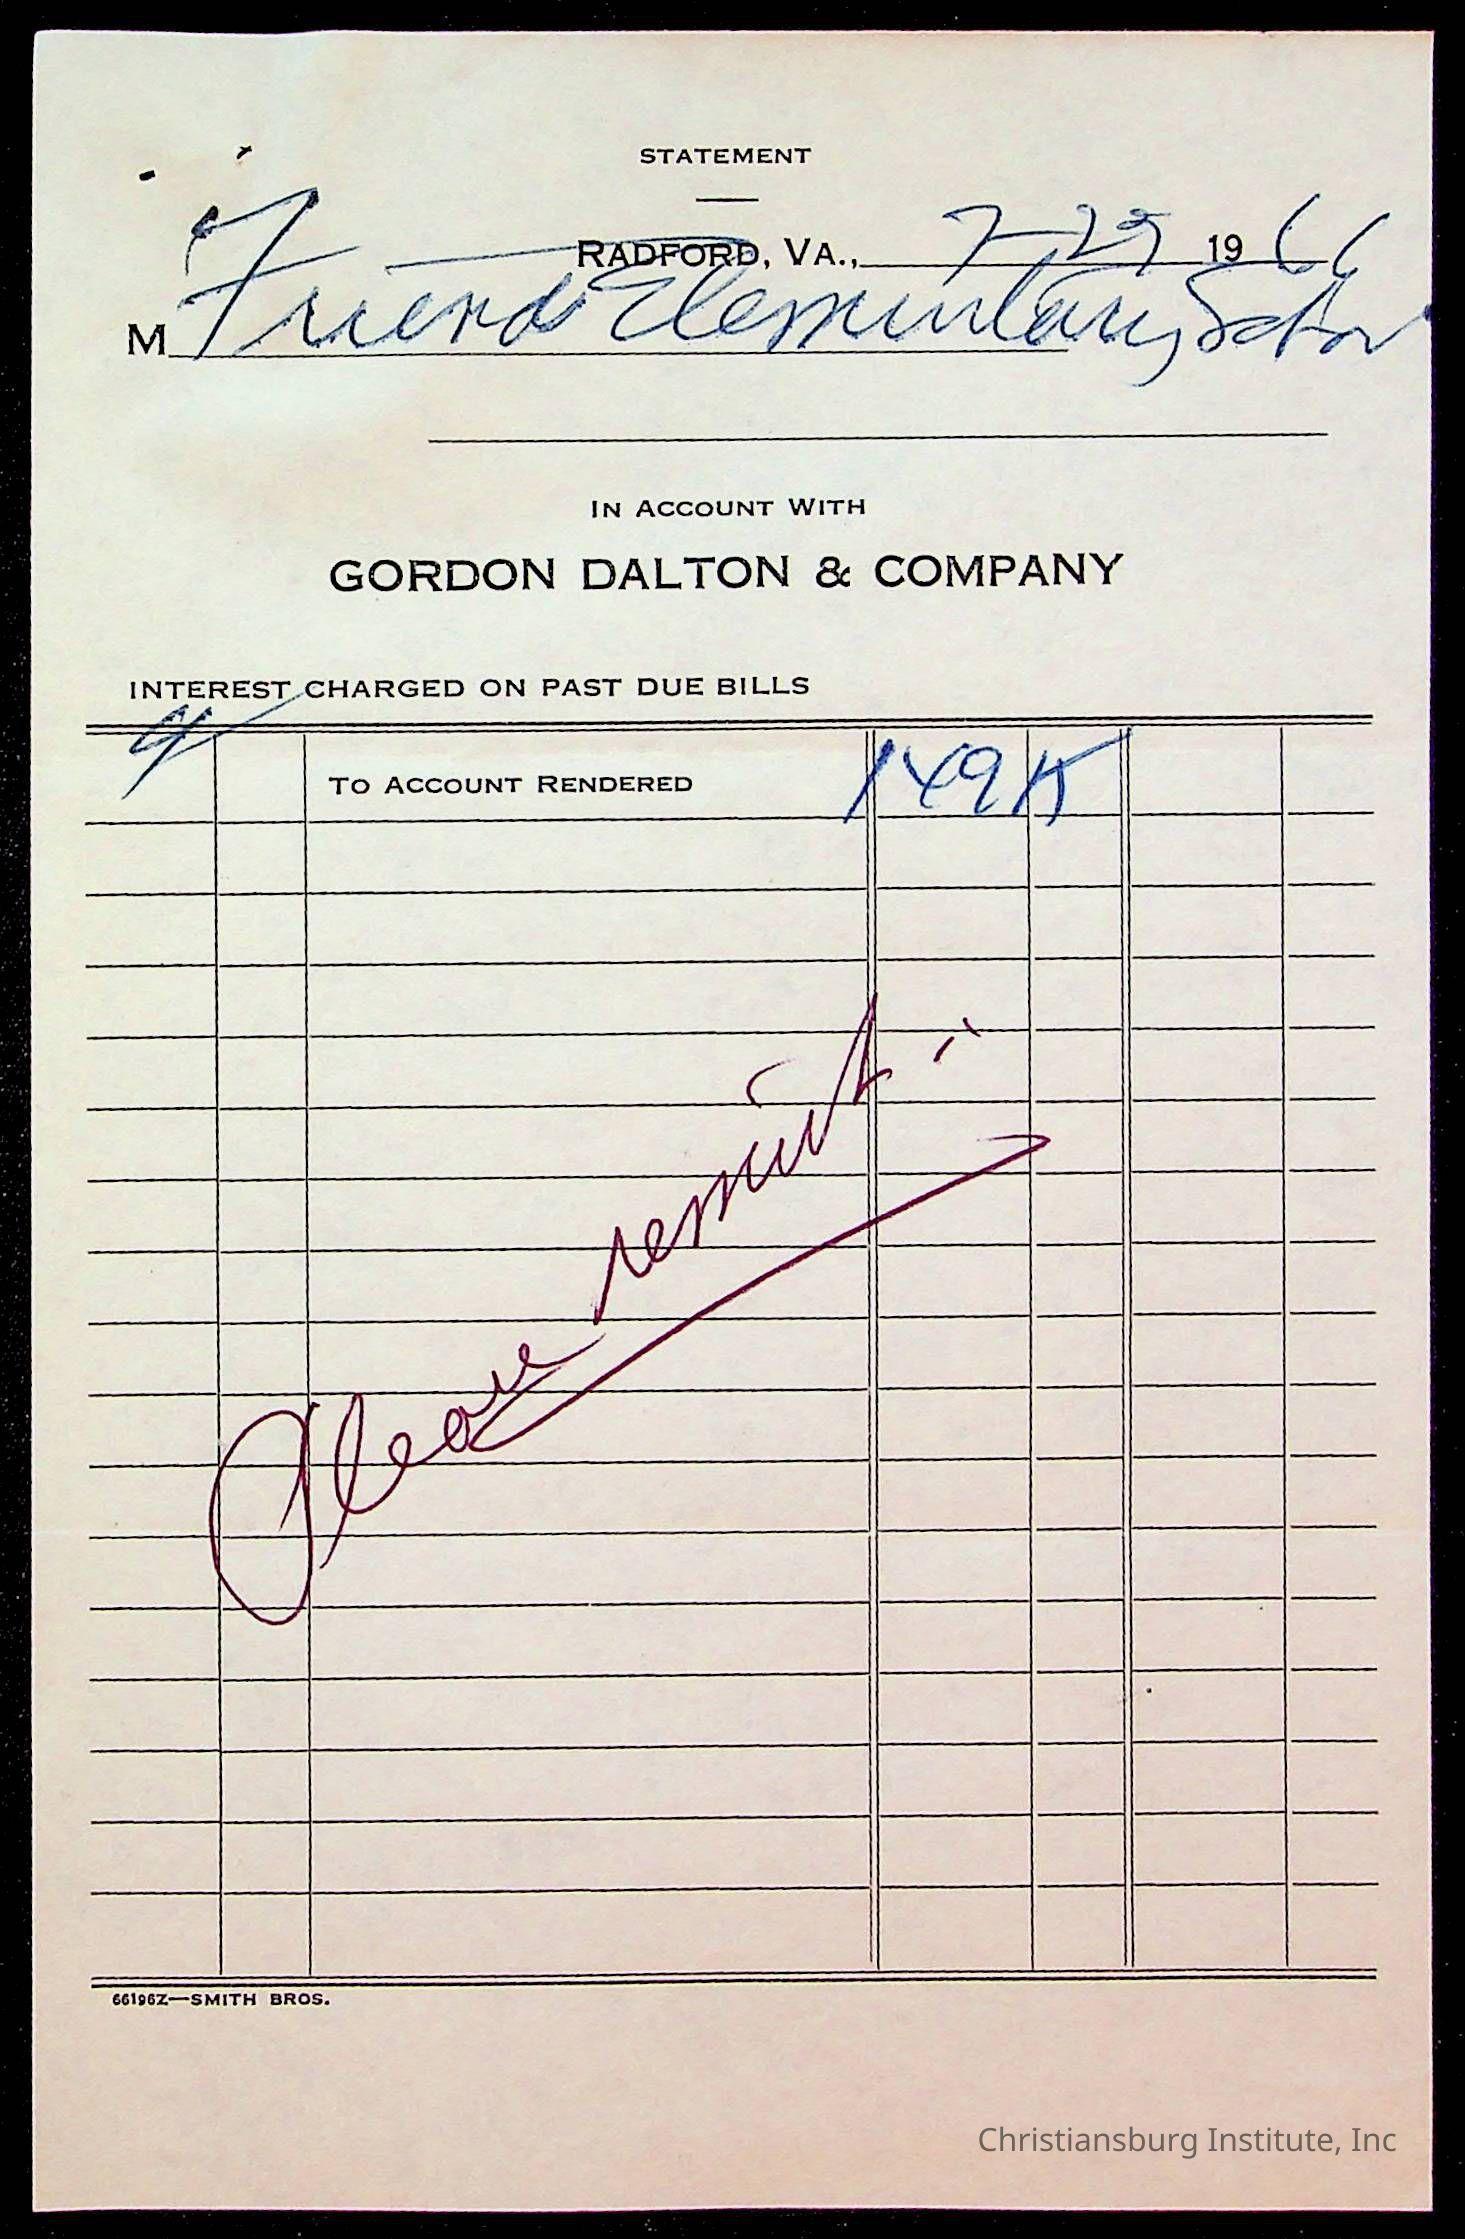 STATEMENT
RADFORD, VA., 7-29 1966
M Friends Elementary School
IN ACCOUNT WITH
GORDON DALTON & COMPANY
INTEREST CHARGED ON PAST DUE BILLS
TO ACCOUNT RENDERED 149
Please remit
66196Z—SMITH BROS.
Christiansburg Institute, Inc